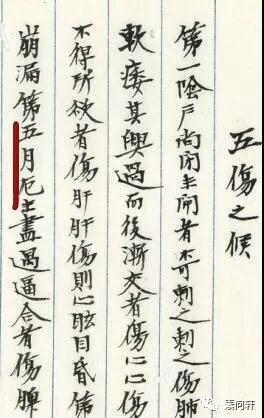 五傷之候
第一陰戶尚閉未開者不可刺之刺之傷肺
軟痿其興過而後漸交者傷心心傷
不得所欲者傷肝肝傷則心眩目昏第
崩漏第五月厄未盡過逼合者傷脾
素问轩